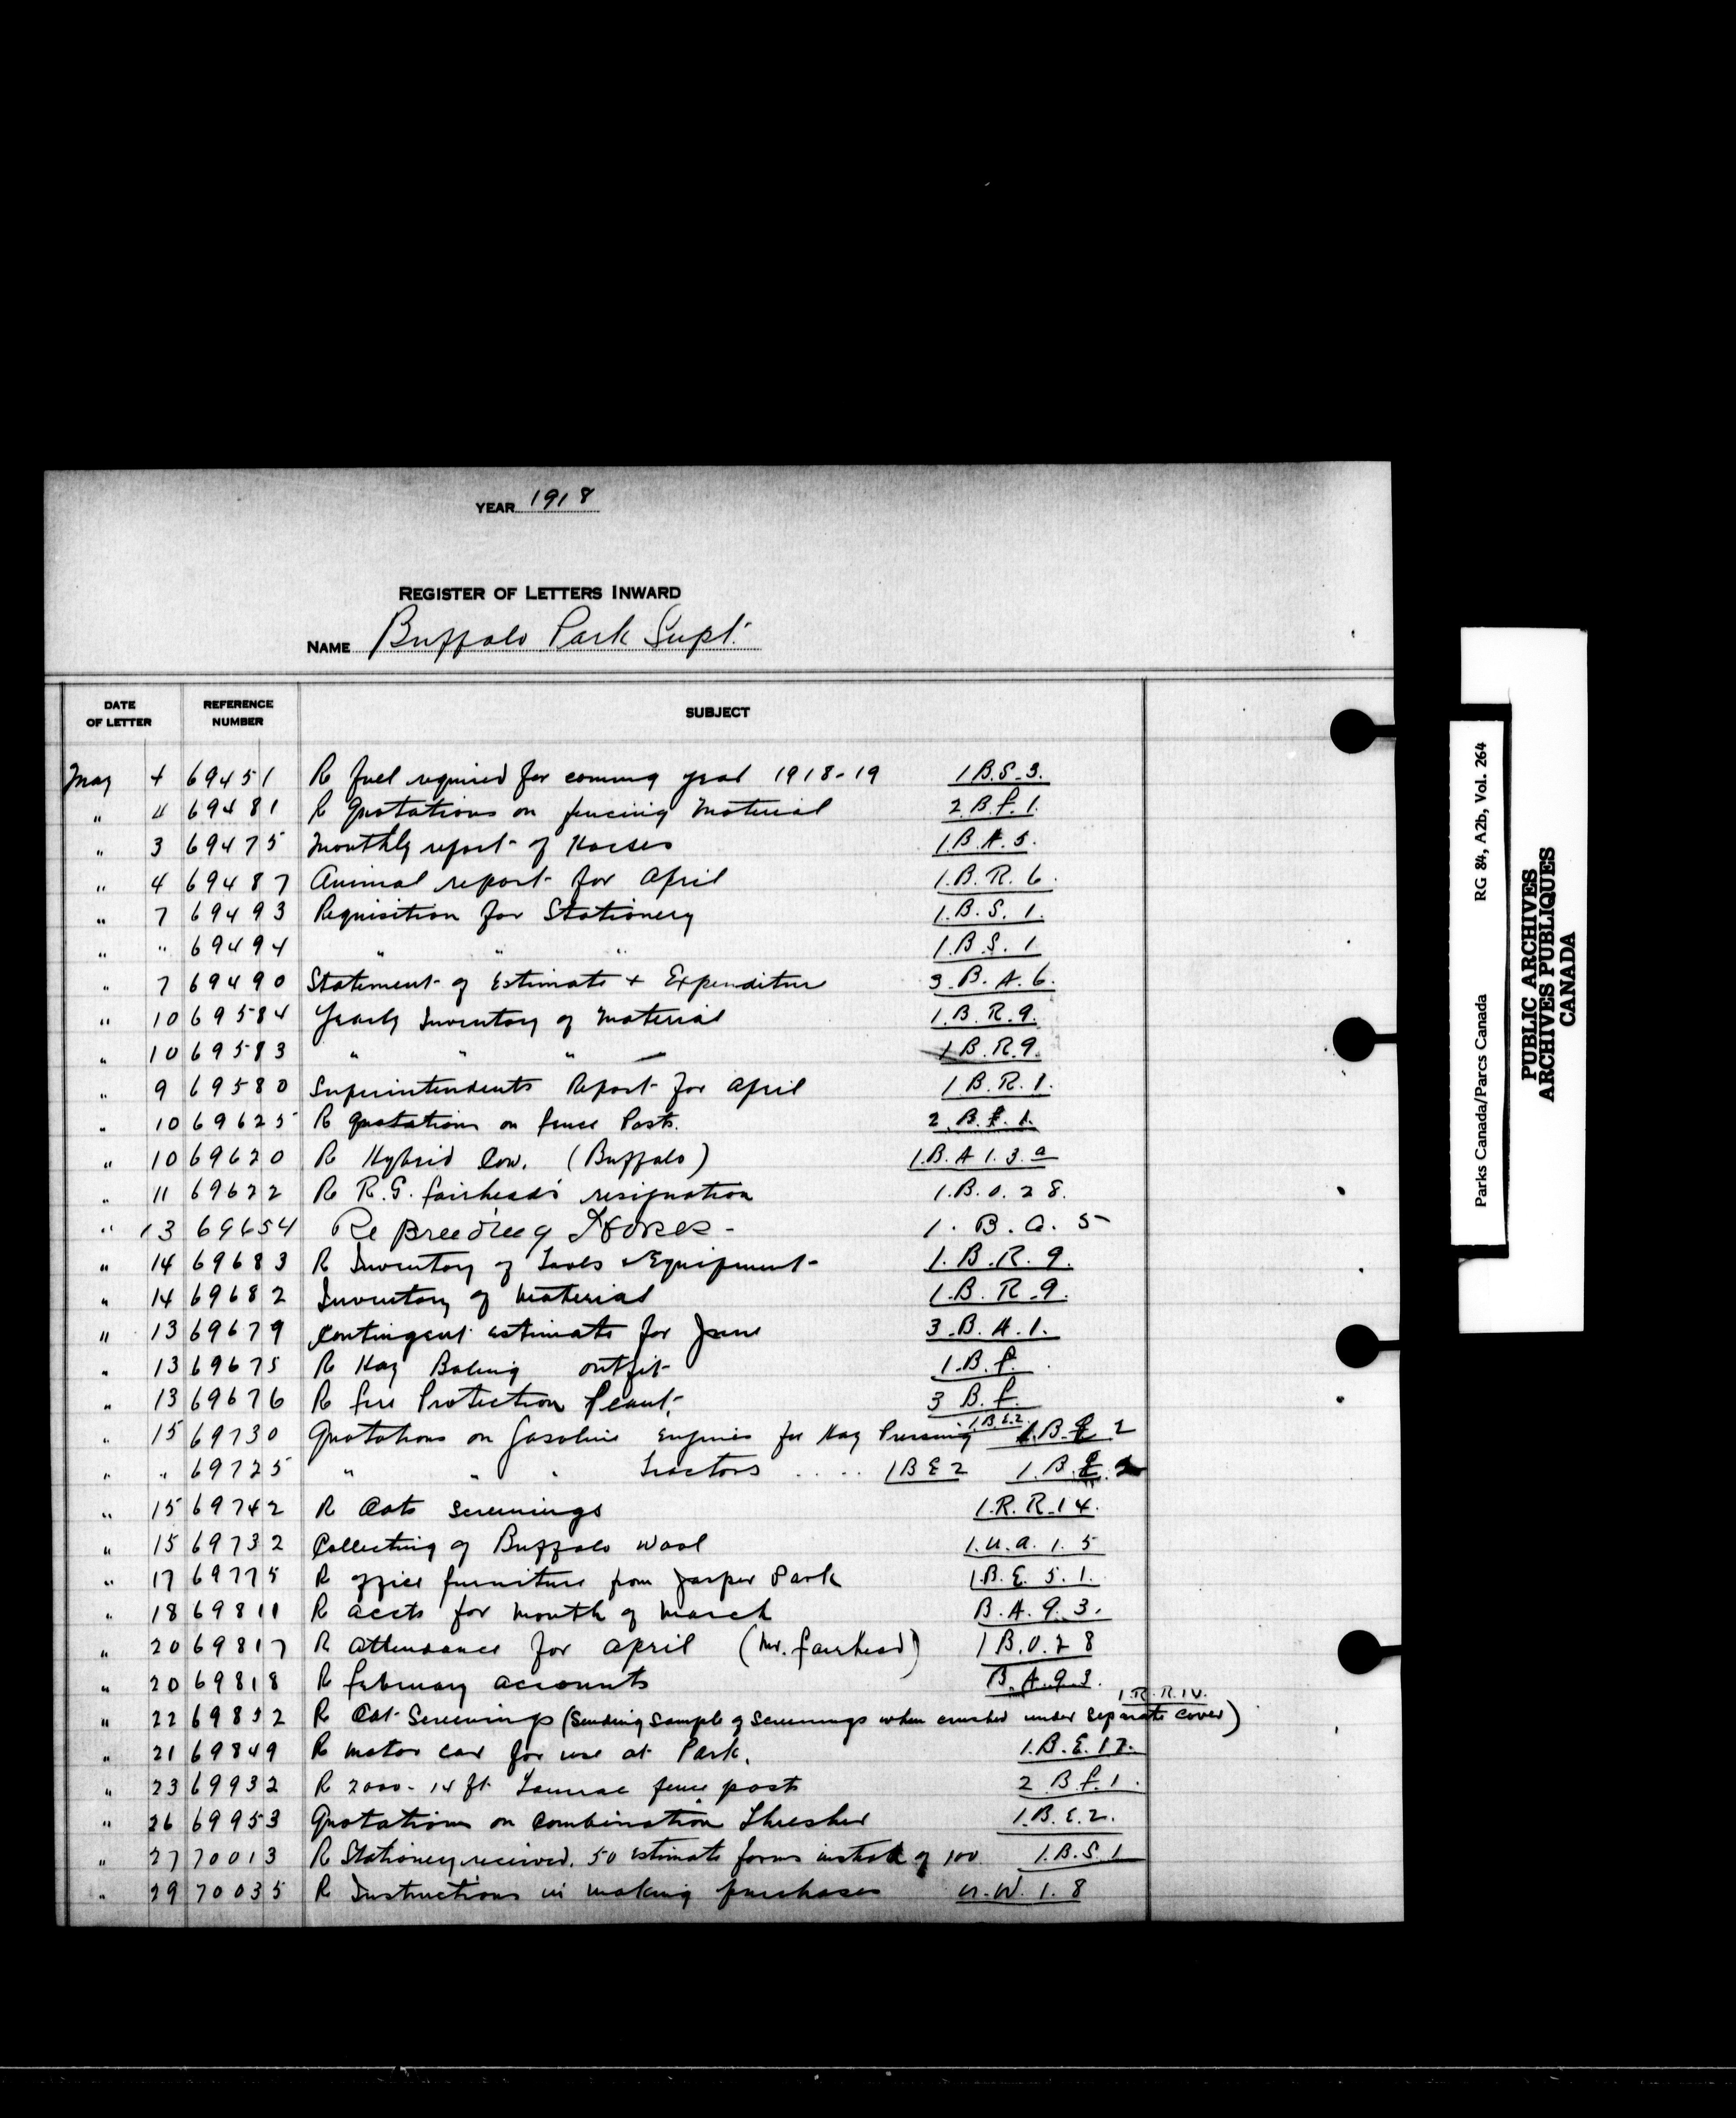 YEAR 1918
REGISTER OF LETTERS INWARD
NAME Buffalo Park Supt.
DATE OF LETTER REFERENCE NUMBER SUBJECT
May 4 69451 R fuel required for coming year 1918-19 1 B.S.3.
" 4 69481 R Quotations on fencing Material 2.B.f.1.
" 3 69475 Monthly report of Horses 1.B.A.5.
" 4 69487 Animal report for April 1.B.R.6.
" 7 69493 Requisition for Stationery 1.B.S.1.
" " 69494 " " " 1.B.S.1
" 7 69490 Statement of Estimate + Expenditure 3.B.A.6.
" 10 69584 Yearly Inventory of Material 1.B.R.9.
" 10 69583 " " " 1 B.R.9.
" 9 69580 Superintendents Report for April 1.B.R.1.
" 10 69625 R quotations on fence Posts. 2.B.f.1.
" 10 69620 R Hybrid Cow. (Buffalo) 1.B.A 1.3.a
" 11 69622 R R.G. Fairhead's resignation 1.B.O.28.
" 13 69654 Re Breeding Horses - 1. B. a. 5
" 14 69683 R Inventory of Tools & Equipment 1.B.R.9.
" 14 69682 Inventory of Material 1.B.R.9.
" 13 69679 Contingent estimate for June 3.B.A.1.
" 13 69675 R Hay Baling outfit 1.B.f.
" 13 69676 R fire Protection Plant. 3 B.f.
" 15 69730 Quotations on Gasoline Engines for Hay Pressing 1.B.E.2. 1.B.E 2
" " 69725 " " " Tractors .... 1 B E 2 1.B.E.2
" 15 69742 R Oats Screenings 1.R.R.14.
" 15 69732 Collecting of Buffalo Wool 1.U.a.1.5
" 17 69775 R office furniture from Jasper Park 1.B.E.5.1.
" 18 69811 R accts for month of March B.A.9.3.
" 20 69817 R attendance for April (Mr. Fairhead) 1 B.O.28
" 20 69818 R February accounts B.A.9.3.
" 22 69852 R Oat Screenings (Sending Sample of Screenings when crushed under separate cover) 1.R.R.14.
" 21 69849 R motor car for use at Park. 1.B.E.17.
" 23 69932 R 2000 - 14 ft. Tamrac fence posts 2 B.f.1.
" 26 69953 Quotations on Combination Thresher 1.B.E.2.
" 27 70013 R Stationery received. 50 estimate forms instead of 100 1.B.S.1
" 29 70035 R Instructions in making purchases U.W.1.8
Parks Canada/Parcs Canada RG 84, A2b, Vol. 264
PUBLIC ARCHIVES
ARCHIVES PUBLIQUES
CANADA